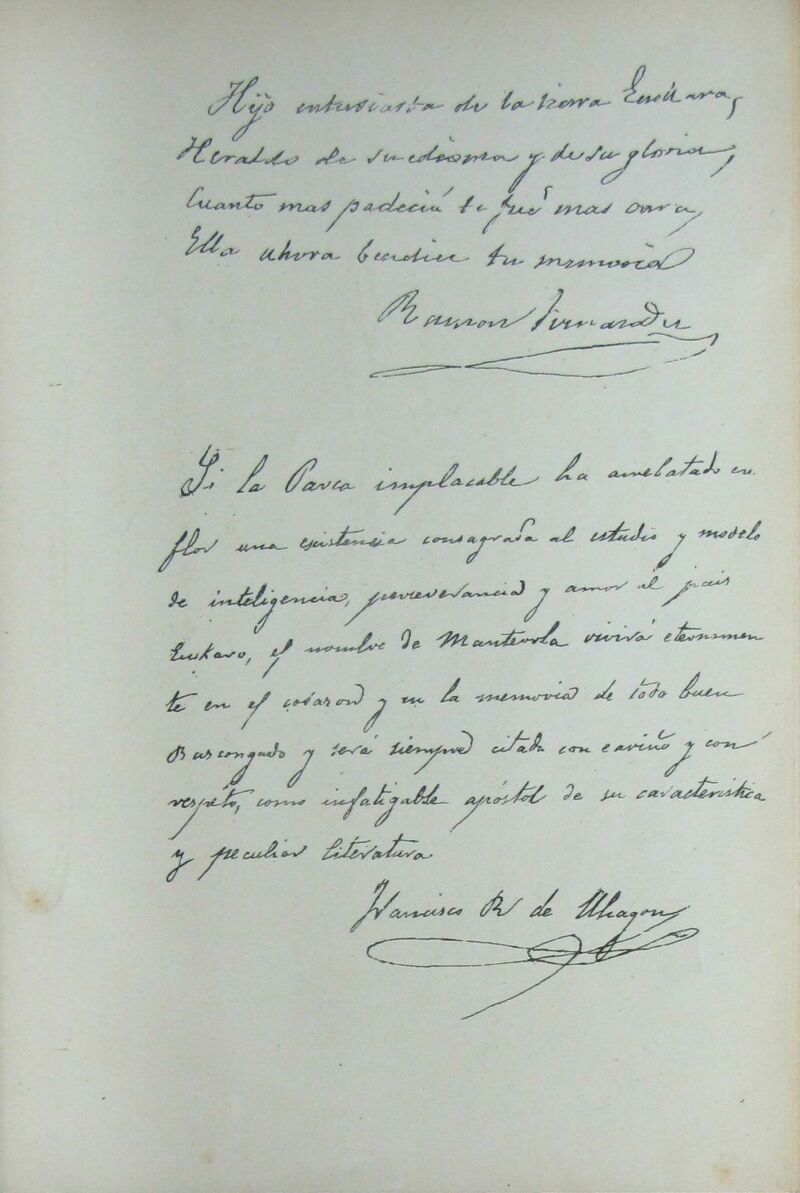 Hijo entusiasta de la tierra Euskara,
Heraldo de su idioma y de su gloria,
Cuanto mas padeció te fué mas cara,
Ella ahora bendice tu memoria
Ramon Fernandez
Si la Parca implacable ha arrebatado en
flor una existencia consagrada al estudio y modelo
de inteligencia, perseverancia y amor al pais
Euskaro, el nombre de Manterola vivirá eternamen
te en el corazon y en la memoria de todo buen
Bascongado y será siempre citado con cariño y con
respéto, como infatigable apóstol de su caracteristica
y peculiar literatura
Francisco R de Uhagon